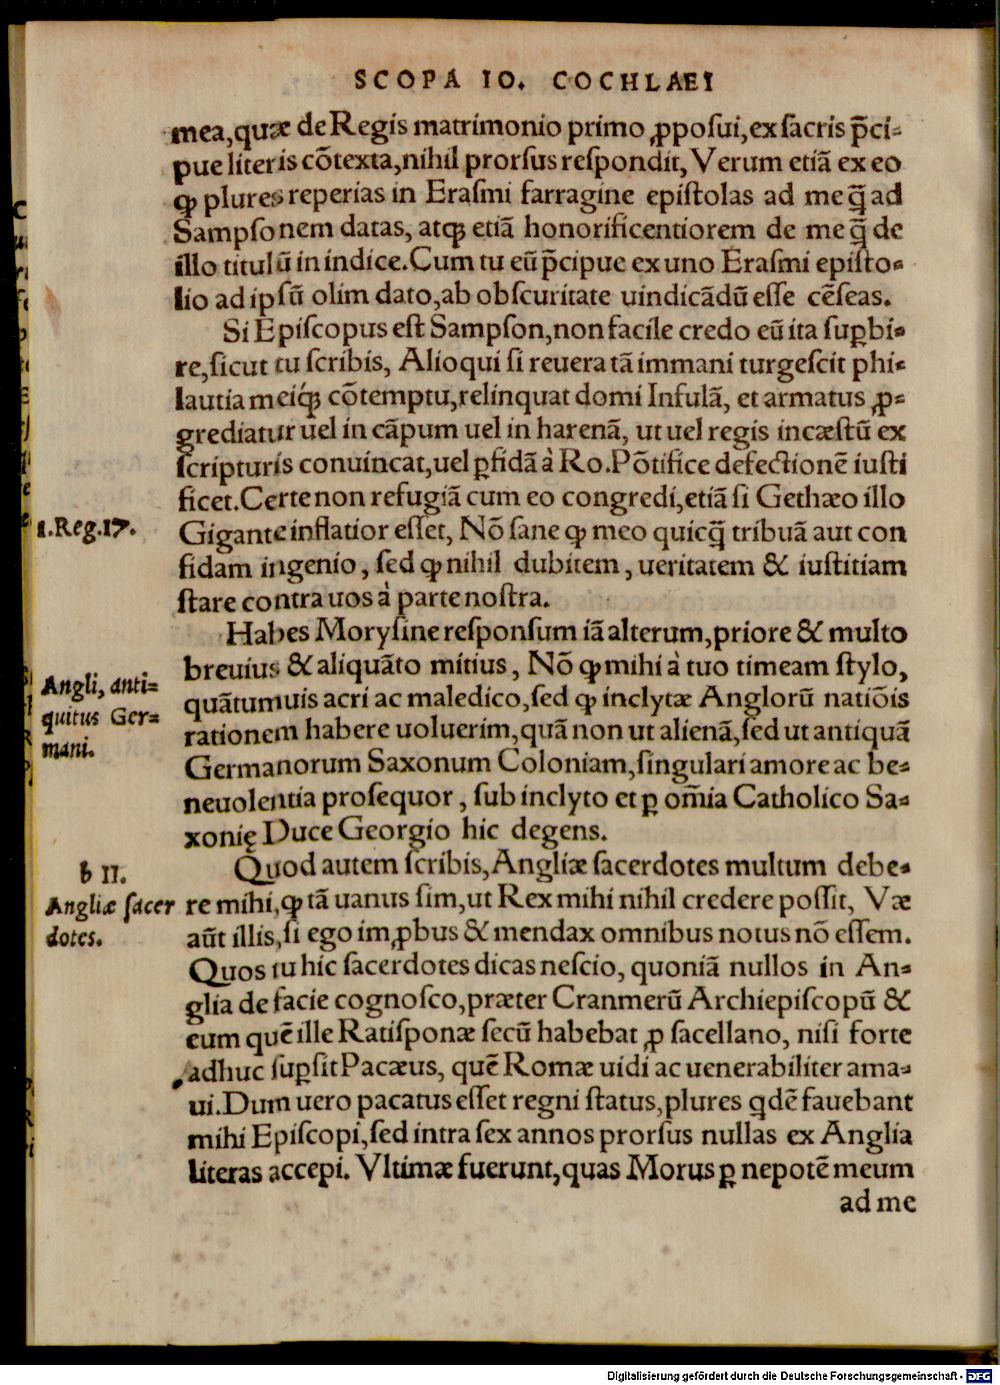 SCOPA IO. COCHLAEI
mea,quæ de Regis matrimonio primo ꝓposui,ex sacris p̃ci-
pue literis cõtexta,nihil prorsus respondit, Verum etiã ex eo
ꝙ plures reperias in Erasmi farragine epistolas ad me q̃ ad
Sampsonem datas, atꝙ etiã honorificentiorem de me q̃ de
illo titulũ in indice.Cum tu eũ p̃cipue ex uno Erasmi episto-
lio ad ipsũ olim dato,ab obscuritate uindicãdũ esse cẽseas.
Si Episcopus est Sampson,non facile credo eũ ita suꝑbi-
re,sicut tu scribis, Alioqui si reuera tã immani turgescit phi-
lautia meiq́ꝫ cõtemptu,relinquat domi Infulã, et armatus ꝓ-
grediatur uel in cãpum uel in harenã, ut uel regis incæstũ ex
scripturis conuincat,uel ꝑfidã à Ro.Põtifice defectionẽ iusti
ficet.Certe non refugiã cum eo congredi,etiã si Gethæo illo
1.Reg.17.
Gigante inflatior esset, Nõ sane ꝙ meo quicq̃ tribuã aut con
fidam ingenio, sed ꝙ nihil dubitem, ueritatem & iustitiam
stare contra uos à parte nostra.
Habes Morysine responsum iã alterum,priore & multo
breuius & aliquãto mitius, Nõ ꝙ mihi à tuo timeam stylo,
Angli, anti-
quitus Ger-
mani.
quãtumuis acri ac maledico,sed ꝙ inclytæ Anglorũ natiõis
rationem habere uoluerim,quã non ut alienã,sed ut antiquã
Germanorum Saxonum Coloniam,singulari amore ac be-
neuolentia prosequor, sub inclyto et ꝑ om̃ia Catholico Sa-
xonię Duce Georgio hic degens.
b II.
Quod autem scribis,Angliæ sacerdotes multum debe-
Angliæ sacer
dotes.
re mihi,ꝙ tã uanus sim,ut Rex mihi nihil credere possit, Væ
aũt illis,si ego imꝓbus & mendax omnibus notus nõ essem.
Quos tu hic sacerdotes dicas nescio, quoniã nullos in An-
glia de facie cognosco,præter Cranmerũ Archiepiscopũ &
eum quẽ ille Ratisponæ secũ habebat ꝓ sacellano, nisi forte
adhuc suꝑsit Pacæus, quẽ Romæ uidi ac uenerabiliter ama-
ui.Dum uero pacatus esset regni status,plures qdẽ fauebant
mihi Episcopi,sed intra sex annos prorsus nullas ex Anglia
literas accepi. Vltimæ fuerunt,quas Morus ꝑ nepotẽ meum
ad me
Digitalisierung gefördert durch die Deutsche Forschungsgemeinschaft - DFG